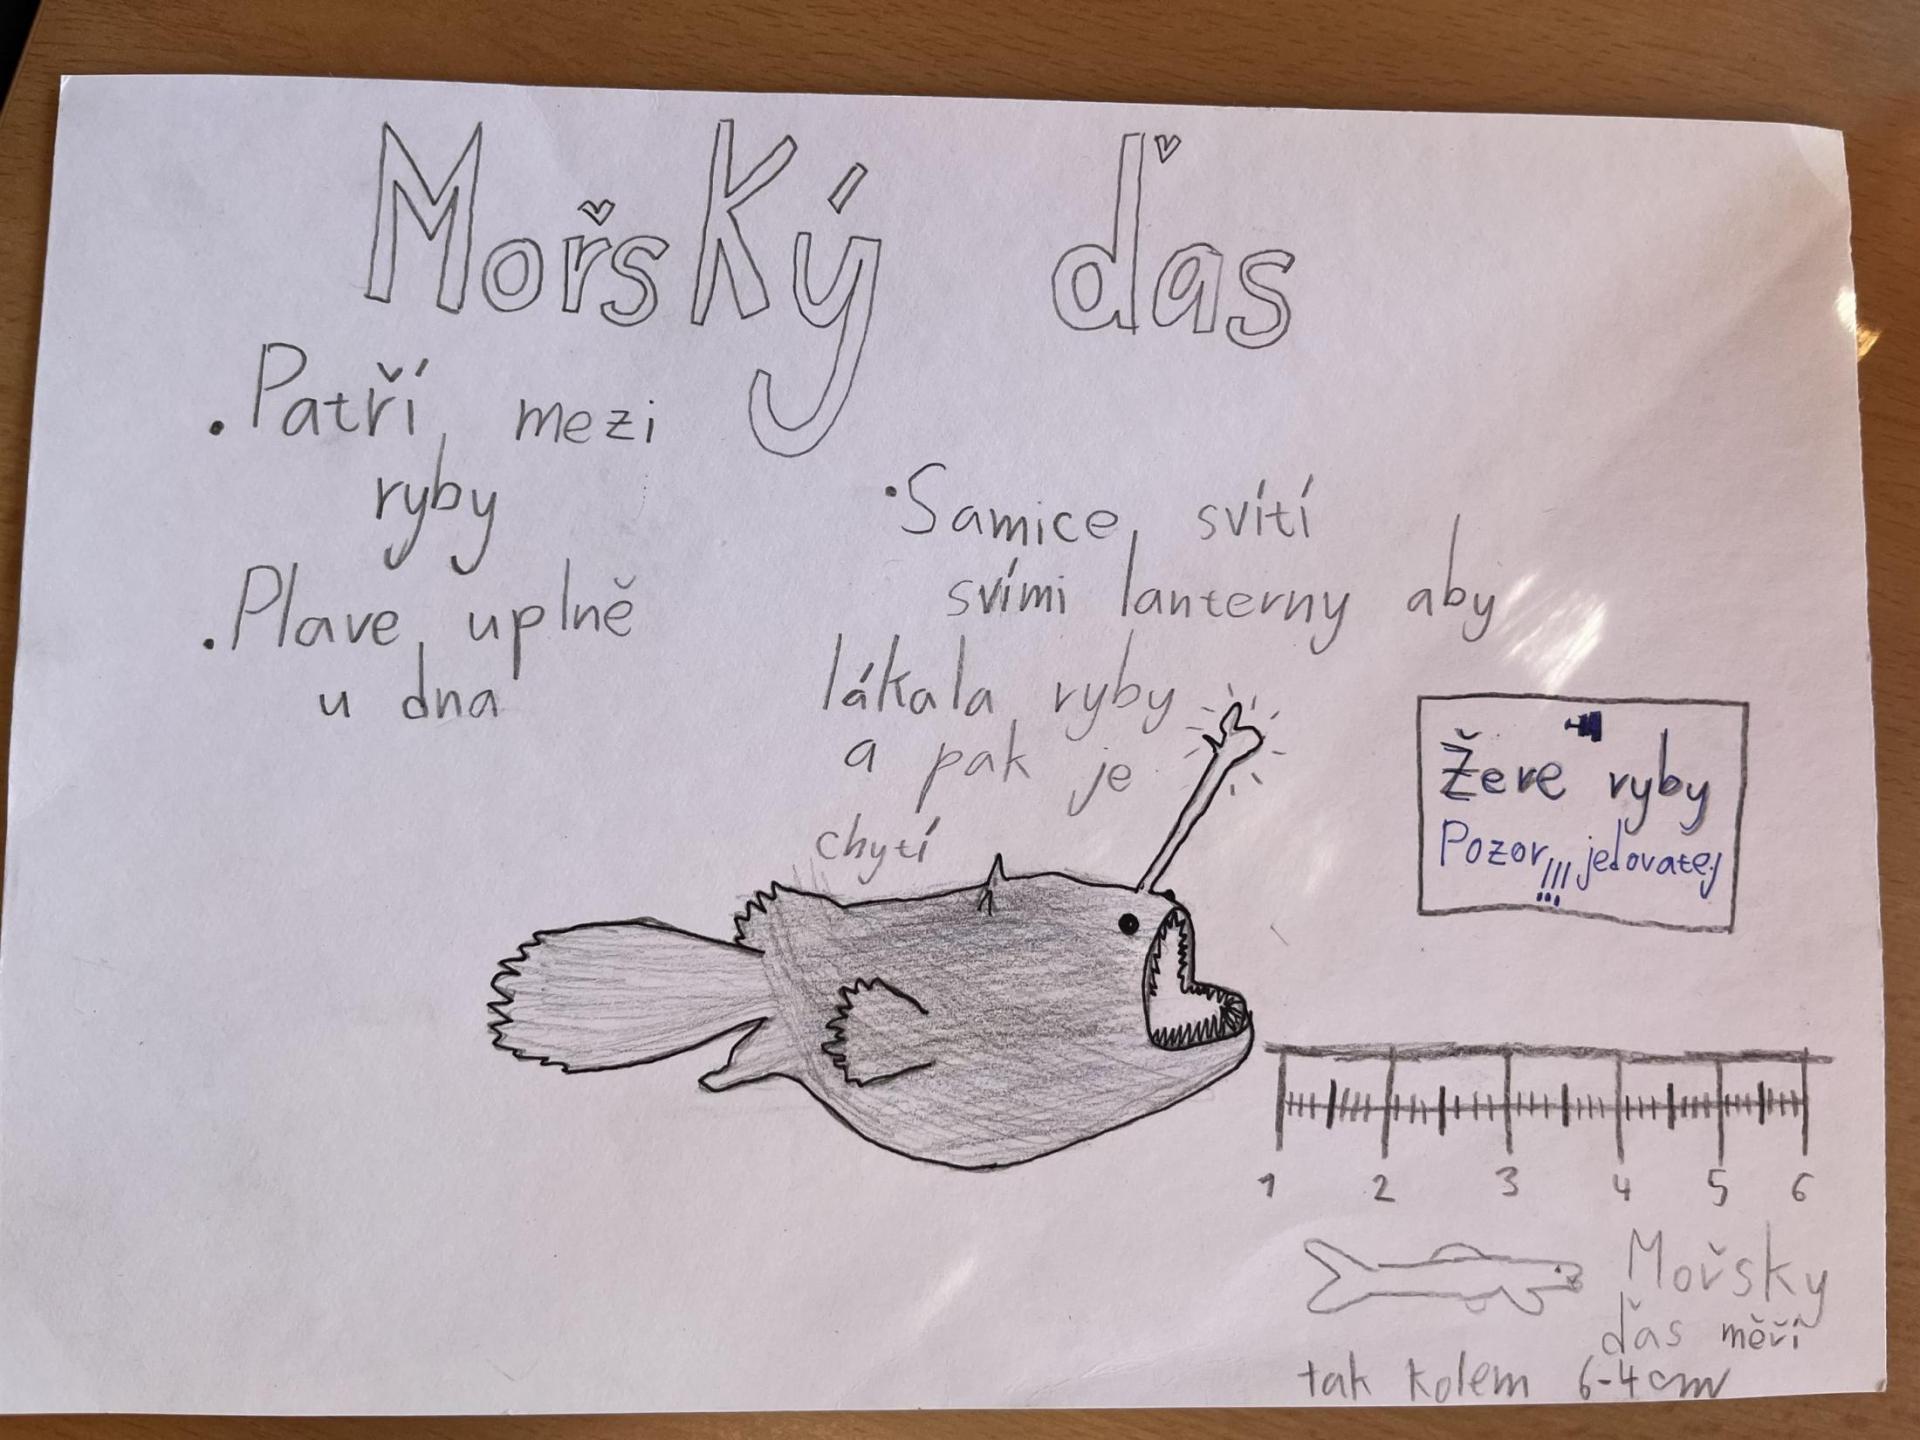 Mořský ďas
• Patří mezi
ryby
• Plave uplně
u dna
• Samice svítí
svími lanterny aby
lákala ryby
a pak je
chytí
Žere ryby
Pozor!!! jedovatej
1 2 3 4 5 6
Mořsky
ďas měří
tak kolem 6-4cm